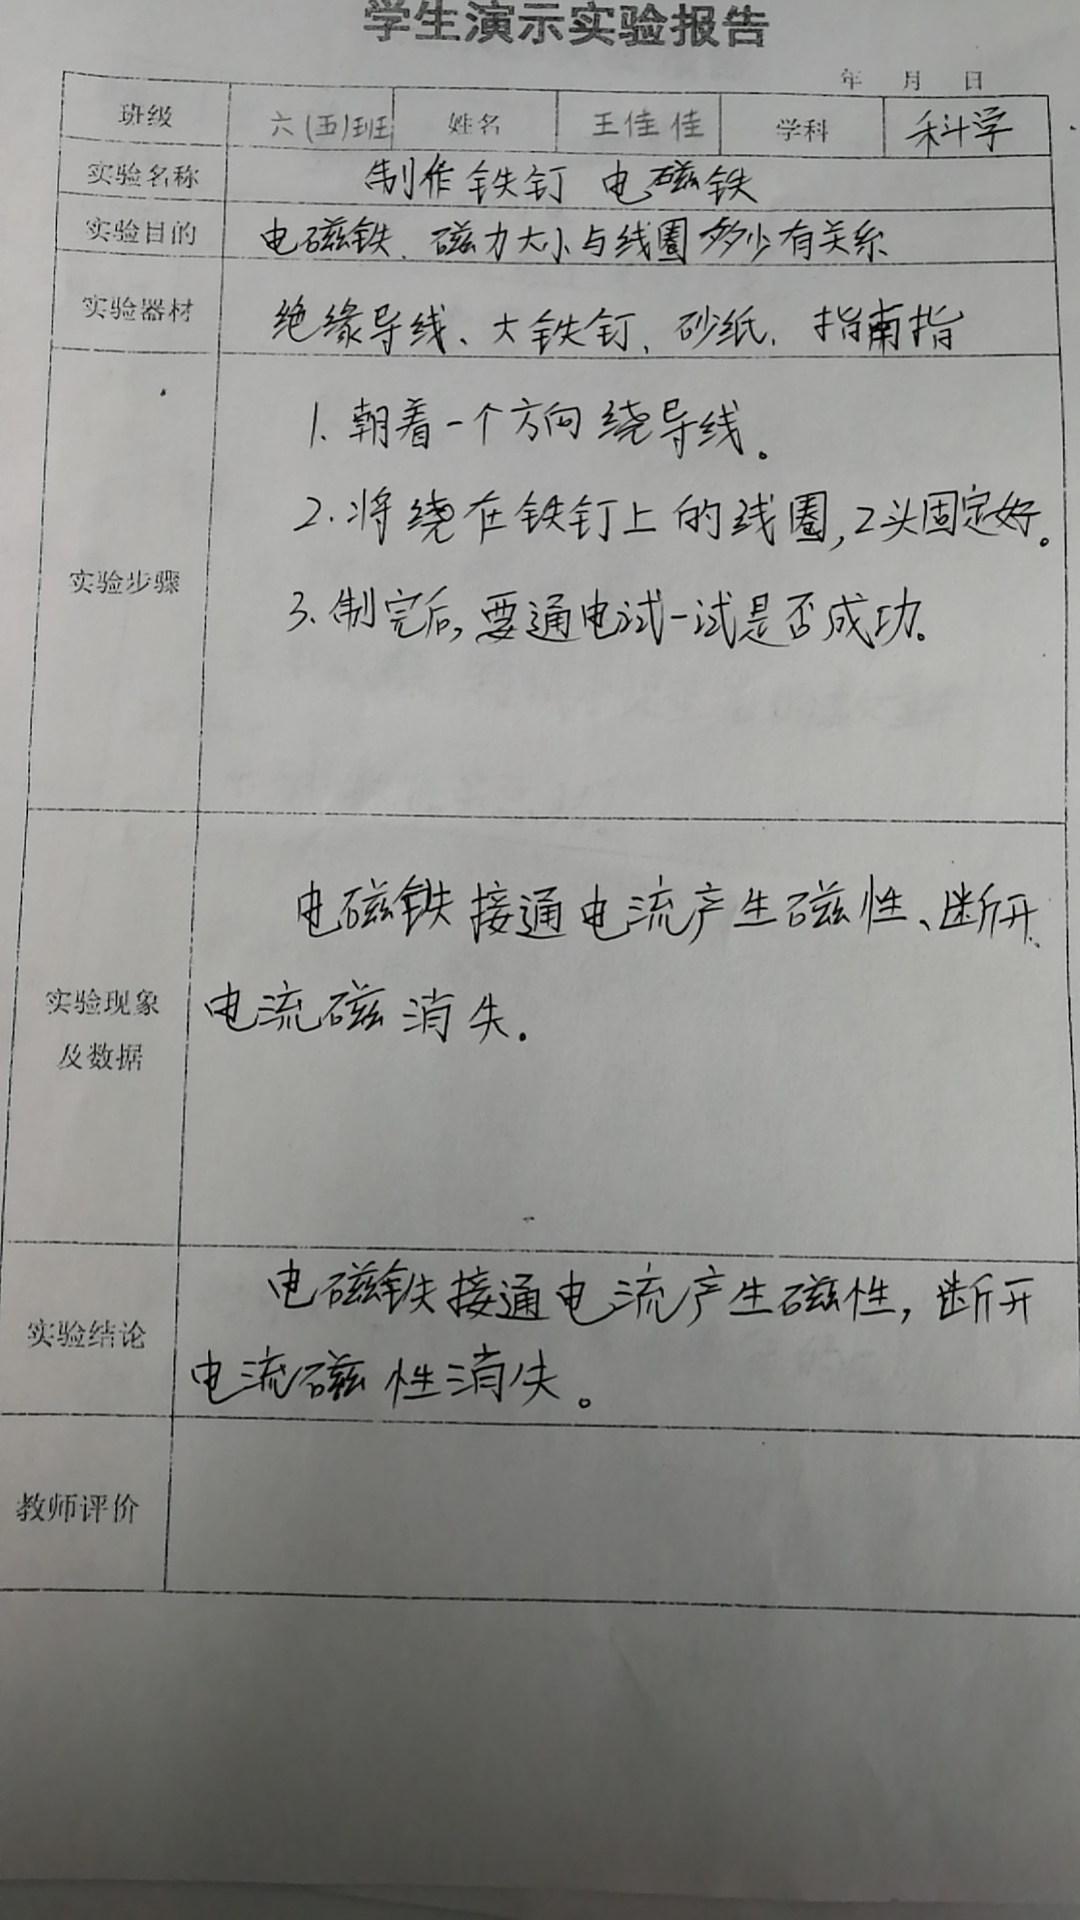 学生演示实验报告
年 月 日
班级 六(五)班 姓名 王佳佳 学科 科学
实验名称 制作铁钉 电磁铁
实验目的 电磁铁、磁力大小与线圈多少有关系
实验器材 绝缘导线、大铁钉、砂纸、指南指
实验步骤
1.朝着一个方向绕导线。
2.将绕在铁钉上的线圈,2头固定好。
3.制完后,要通电试一试是否成功。
实验现象
及数据
电磁铁接通电流产生磁性、断开
电流磁消失.
实验结论
电磁铁接通电流产生磁性,断开
电流磁性消失。
教师评价